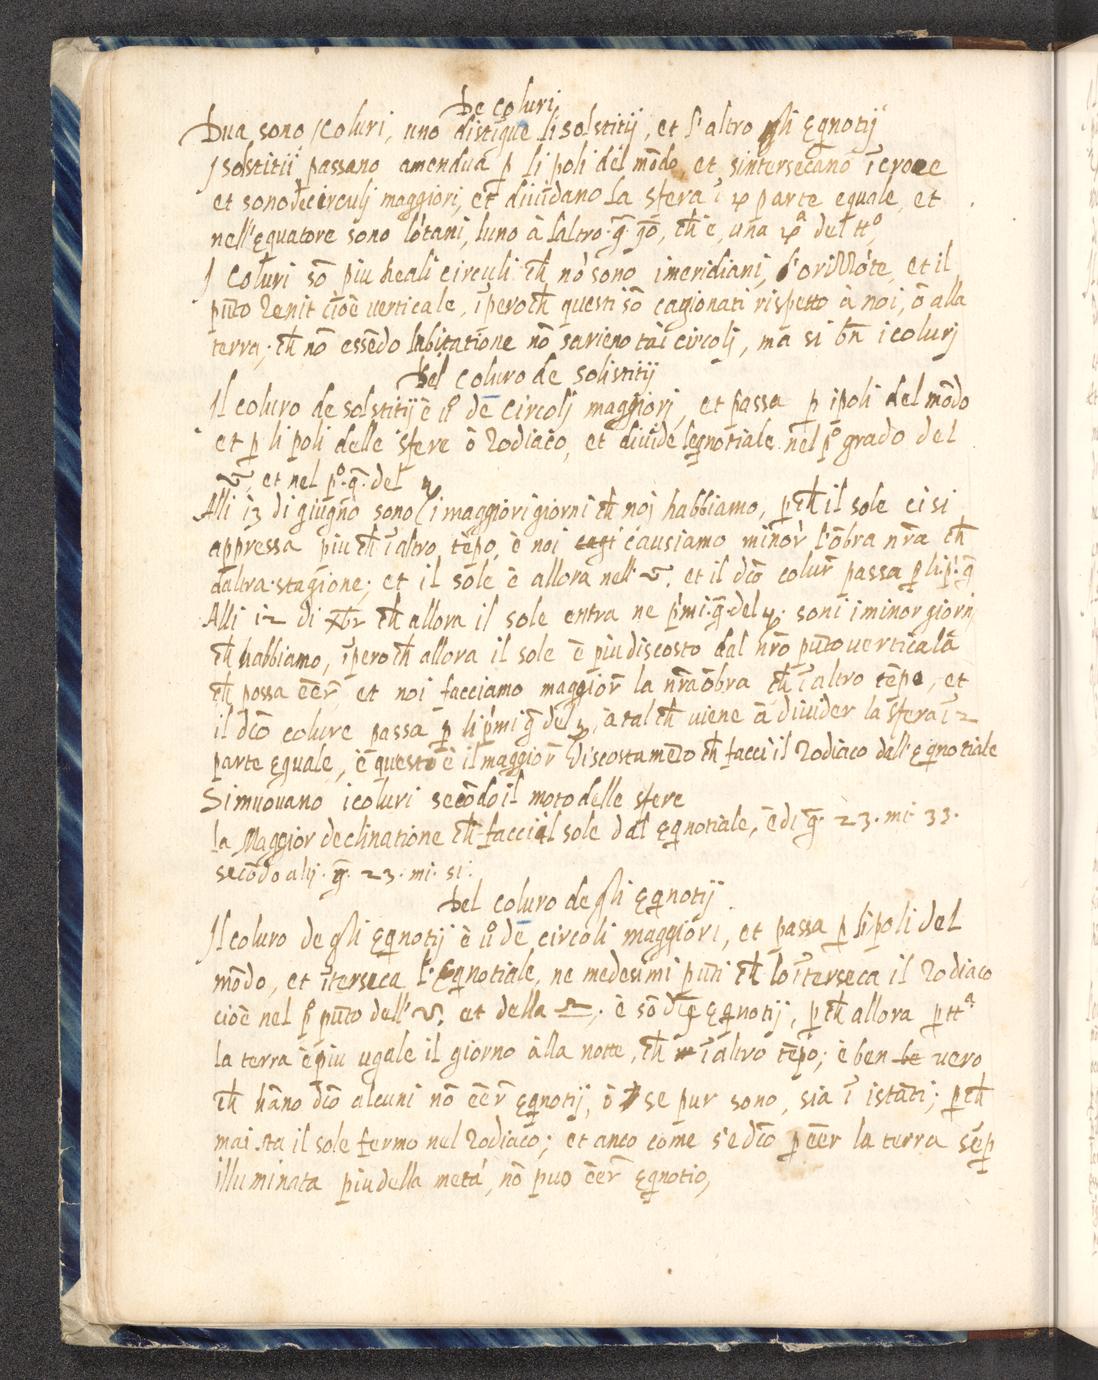 De coluri
Dua sono i coluri, uno distigue li solstitij, et l'altro gli eqnotij
I solstitij passano amendua p li poli del mōdo, et sintersecano ī croce
et sono de circulj maggiori, et diuidano la sfera ī 4 parte equale, et
nell'equatore sono lōtani, luno à laltro g. 90, ch è, una 4ª del tto,
I coluri sō piu reali circuli ch nō sono i meridiani, l'orizzōte, et il
pūto Zenit cioè uerticale, īperoch questi sō cagionati rispetto à noi, ō alla
terra; ch nō essēdo labitatione nō sarieno tai circolj, ma si bn i colurj
Del coluro de solistitij
Il coluro de solstitij è uº de circolj maggiorj, et passa p i poli del mōdo
et p li poli delle sfere ō Zodiaco, et diuide leqnotiale nel pº grado del
♋, et nel pº. g. del ♑
Alli 13 di giugno sono i maggiori giorni ch noj habbiamo, p ch il sole ci si
appressa piu ch ī altro tēpo, è noi causiamo minor l'ōbra nra ch
daltra stagione; et il sole è allora nell ♋. et il dcō colur passa p li p. g
Alli 12 di Xbr ch allora il sole entra ne pmi. g. del ♑. soni i minor giorni
ch habbiamo, īperoch allora il sole è piu discosto dal nrō pūto uerticala
ch possa eer, et noi facciamo maggior la nra ōbra ch ī altro tēpo, et
il dcō colure passa p li pmi g del ♑, à tal ch uiene à diuider la sfera ī 2
parte equale, è questo è il maggior discostamēto ch facci il Zodiaco dall'eqnotiale
Si muouano i coluri secōdo il moto delle sfere
la Maggior declinatione ch facci il sole dal eqnotiale, è di g. 23. mi 33.
secōdo alij. g. 23. mi. 51.
Del coluro degli eqnotij
Il coluro degli eqnotij è uº de circoli maggiori, et passa p li poli del
mōdo, et īterseca l'eqnotiale, ne medesimi pūti ch lo īterseca il Zodiaco
cioè nel pº pūto dell' ♈. et della ♎; è sō dti eqnotij, p ch allora p tta
la terra è piu ugale il giorno alla notte, ch ī altro tēpo; è ben vero
ch hāno dcō alcuni nō eer eqnotij, ō se pur sono, sia ī istāti; p ch
mai sta il sole fermo nel Zodiaco; et anco come s'è dcō p eer la terra sēp
illuminata piu della metà, nō puo eer eqnotio,